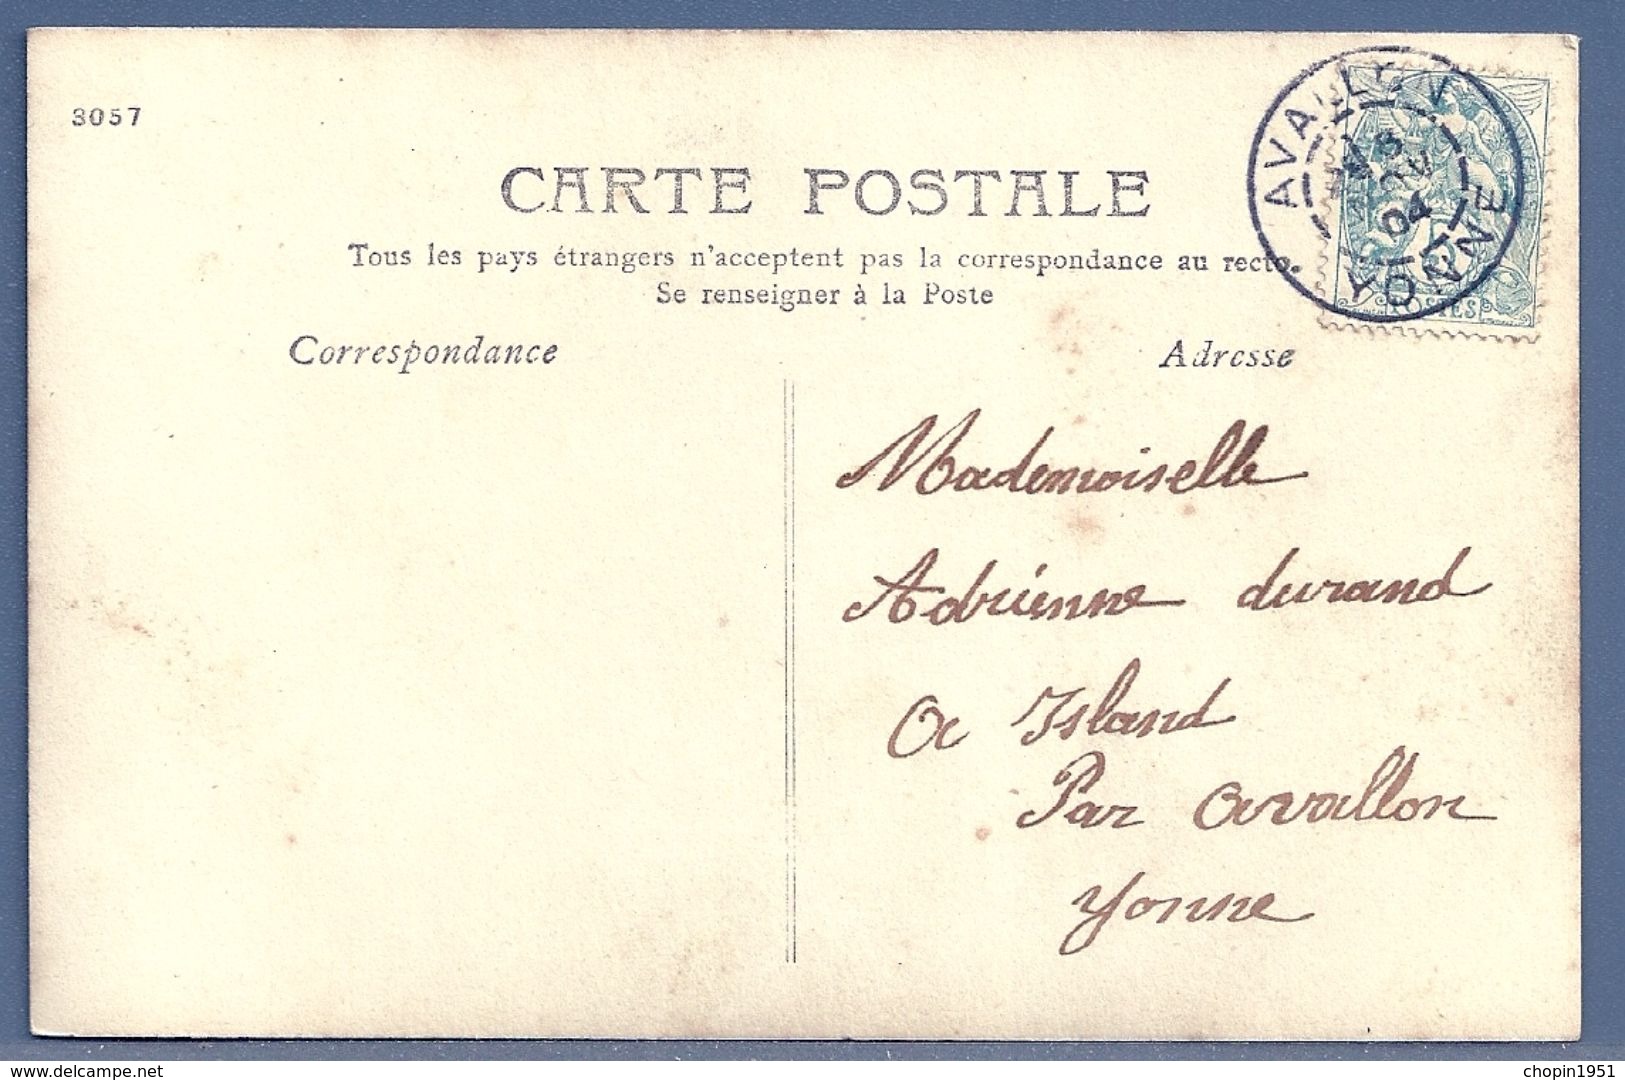 3057
CARTE POSTALE
Tous les pays étrangers n'acceptent pas la correspondance au recto.
Se renseigner à la Poste
Correspondance
Adresse
AVALLON
04
YONNE
POSTES
Mademoiselle
Adrienne durand
a Island
Par Avallon
Yonne
delcampe.net
chopin1951